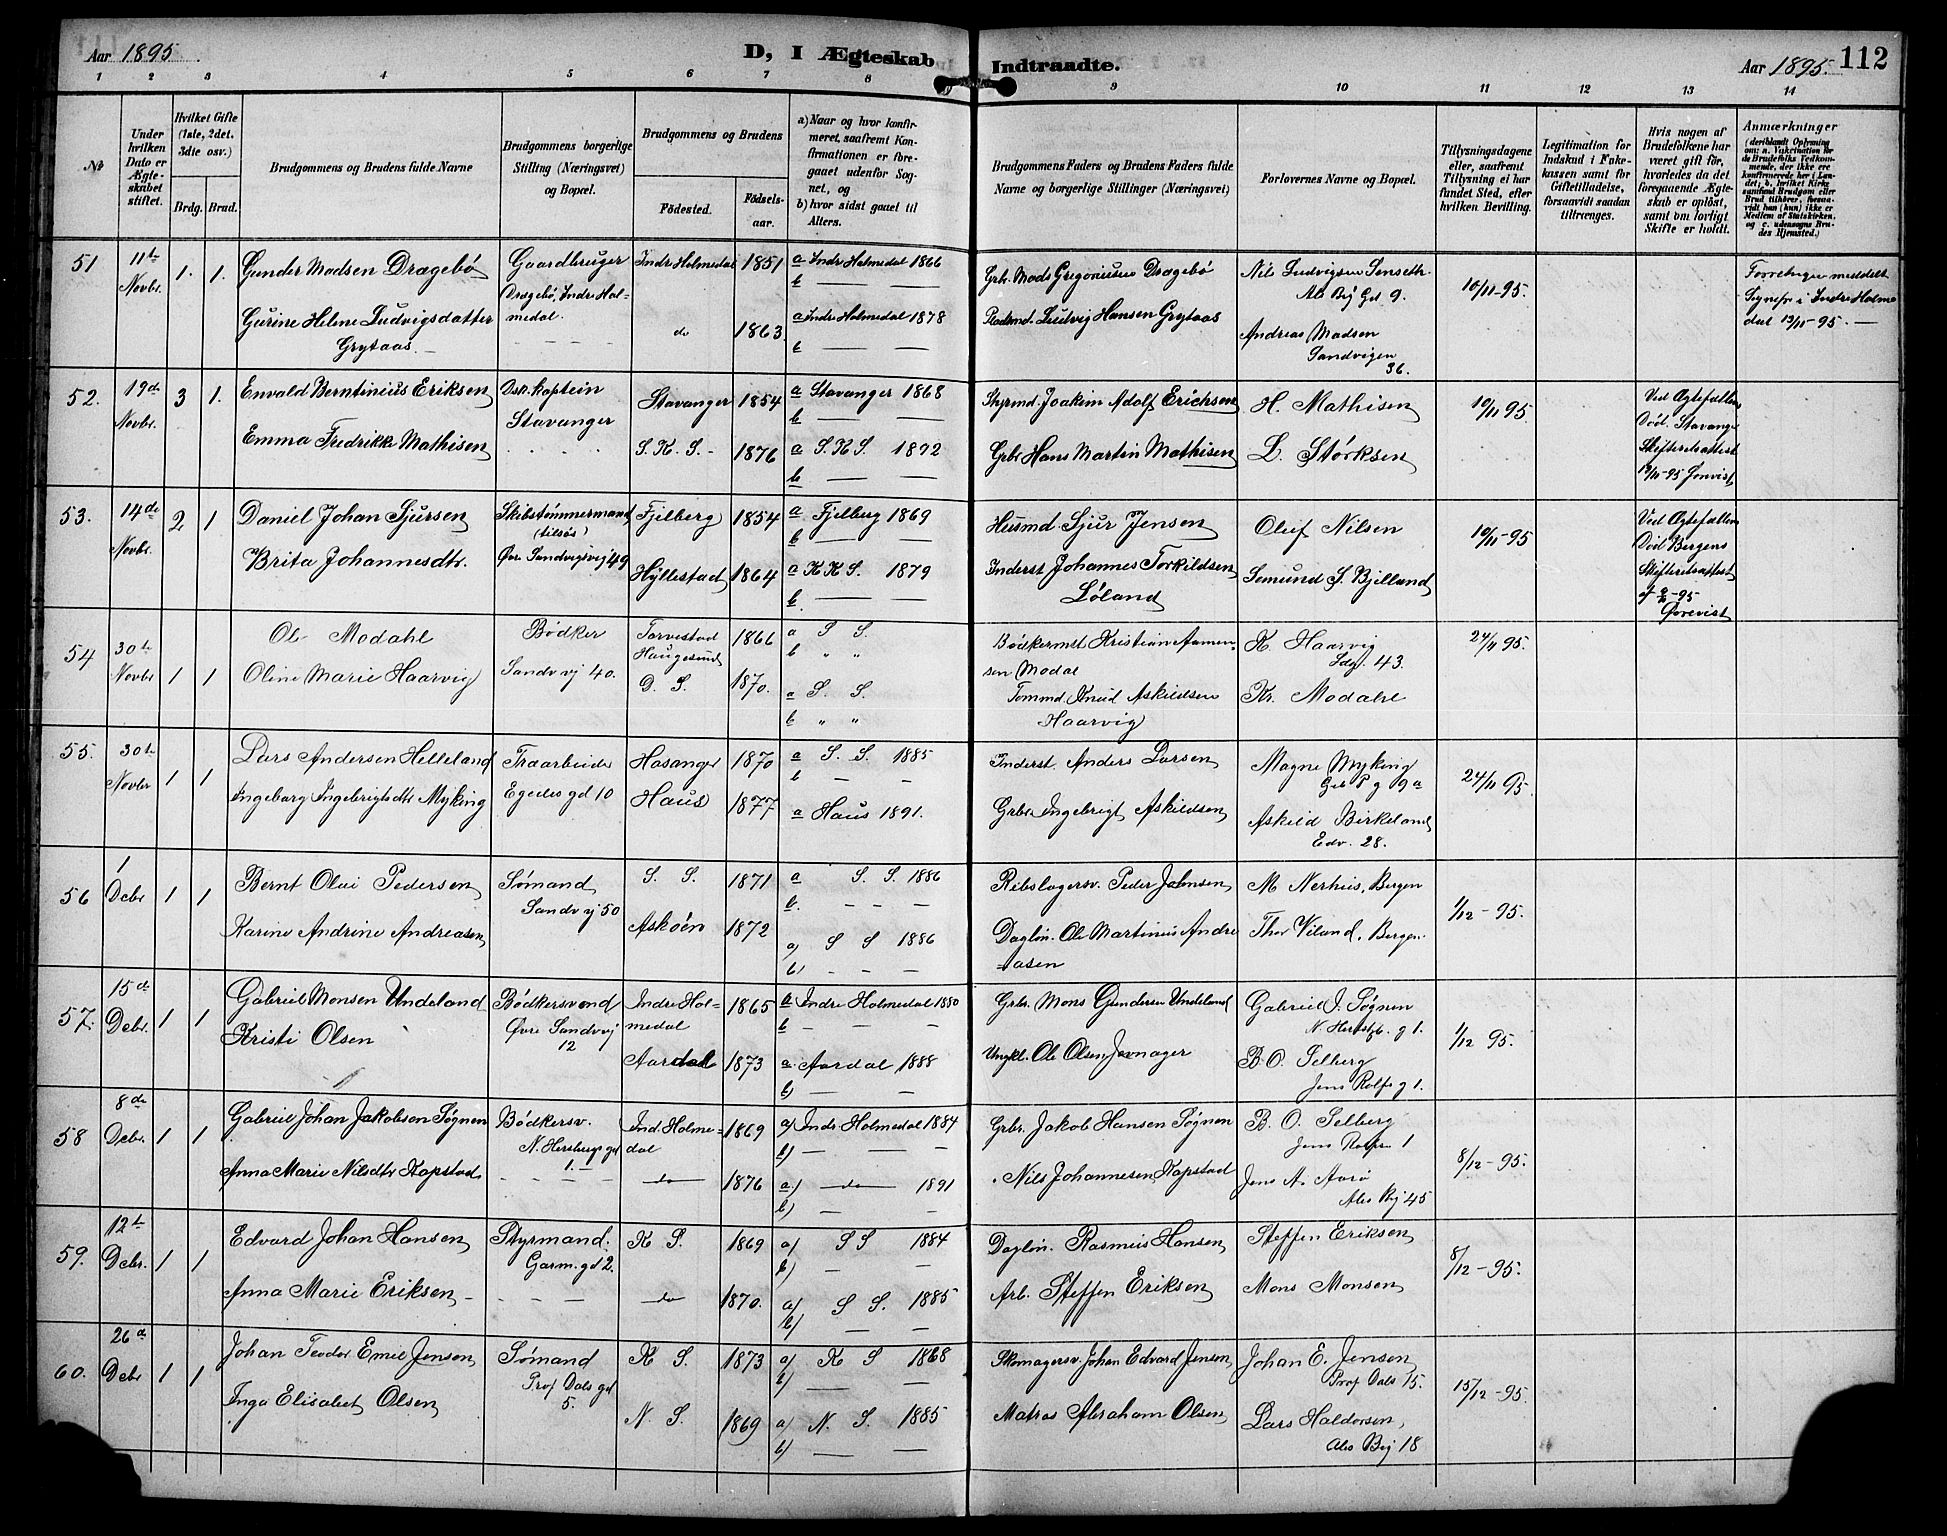 Aar 1895.
D, I Ægteskab Indtraadte.
Aar 1895. 112
1 2 3 4 5 6 7 8 9 10 11 12 13 14
No
Under hvilken Dato er Ægteskabet stiftet.
Hvilket Gifte (1ste, 2det, 3die osv.)
Brdg. Brud.
Brudgommens og Brudens fulde Navne
Brudgommens borgerlige Stilling (Næringsvei) og Bopæl.
Brudgommens og Brudens
Fødested. Fødselsaar.
a) Naar og hvor konfirmeret, saafremt Konfirmationen er foregaaet udenfor Sognet, og
b) hvor sidst gaaet til Alters.
Brudgommens Faders og Brudens Faders fulde Navne og borgerlige Stillinger (Næringsvei)
Forlovernes Navne og Bopæl.
Tillysningsdagene eller, saafremt Tillysning ei har fundet Sted, efter hvilken Bevilling.
Legitimation for Indskud i Enkekassen samt for Giftetilladelse, forsaavidt saadan tiltrænges.
Hvis nogen af Brudefolkene har været gift før, hvorledes da det foregaaende Ægteskab er opløst, samt om lovligt Skifte er holdt.
Anmærkninger
51 11te Novbr. 1. 1.
Gunder Madsen Dragebø
Gaardbruger
Dragebø, Indre Holmedal.
Indr Holmedal 1851
a Indr Holmedal 1866
b — — —
Grbr. Mads Gregoriusen Dragebø
Nils Ludvigsen Senseth
Als Bij Gd 9.
10/11-95.
Forretningen meddelt Sognepr i Indre Holmedal 13/11-95. —
Gurine Helene Ludvigsdatter
Grytaas. —
do 1863
a Indr Holmedal 1878
b — —
Pladsmd. Ludvig Hansen Grytaas
Andreas Madsen
Sandvigen
36.
52. 19de Novbr. 3 1.
Envald Berntinius Eriksen
Dsk. kaptein
Stavanger
Stavanger 1854
a Stavanger 1868
b — —
Styrmd. Joakim Adolf Erichsen
H. Mathisen
10/11 95
Ved Ægtefællens Død. Stavanger Skifteretsattest
Emma Fredrikke Mathisen
S. K. S. - 1876
a S. K S. 1892
b — —
Grbr Hans Martin Mathisen
L. Størksen
53. 14de Novbr. 2 1
Daniel Johan Sjursen
Skibstømmermand
(tilsøs)
Øvre Sandvigsvij 49
Fjelberg 1854
a Fjelberg 1869
b — —
Husmd Sjur Jensen
Oluf Nilsen
10/11-95
Ved Ægtefællens Død Bergens Skifteretsattest
Brita Johannesdtr.
Hyllestad 1864
a K K S. 1879
b. — —
Inderst Johannes Torkildsen
Løland
Semund S. Bjelland
54 30te Novbr 1 1
Ole Modahl
Bødker
Sandvvj 40.
Torvestad
Haugesund 1866
a S S.
b " "
Bødkermd Kristian Aamensen Modal
K. Haarvig
43.
24/11 95.
Oline Marie Haarvig
D. S. 1870.
a S. S.
b " "
Tommd. Knud Askildsen
Haarvig
Kr. Modahl
55. 30te Novbr 1 1
Lars Andersen Helleland
Traarbeider
Egedes gd 10
Hosanger 1870
a S. S. 1885
b —
Inderst. Anders Larsen
Magne Myking
24/11 95.
Ingeborg Ingebrigtsdtr Myking
Haus 1877
a Haus 1891.
Grbr. Ingebrigt Askildsen
Askild Birkeland
Edv. 28.
56 1 Debr 1 1
Bernt Olai Pedersen
Sømand
Sandvvj 50
S. S. 1871
a S. S. 1886
b. - - -
Rebslagersv. Peder Johnsen
M Nerhus, Bergen
1/12-95.
Karine Andrine Andreasen
Askøen 1872
a) S S 1886
b) - - -
Dagløn. Ole Martinius Andreasen
Thor Viland, Bergen
57. 15de Debr. 1 1
Gabriel Monsen Undeland
Bødkersvend
Øvre Sandvvj
12
Indre Holmedal 1865
a Indre Holmedal 1880
b - - -
Grbr. Mons Gundersen Undeland
Gabriel J. Søgnen
N. Hersbg. g 1.
1/12 95.
Kristi Olsen
Aardal 1873
a Aardal 1888
b) - - -
Ungkl. Ole Olsen Jevnager
B. O. Selberg
Jens Rolfs g 1.
58 8de Debr. 1 1
Gabriel Johan Jakobsen Søgnen
Bødkersv.
N. Hersbergs gd
1. —
Ind. Holmedal 1869
a) Indr Holmedal 1884
b) — — —
Grbr. Jakob Hansen Søgnen
B. O. Selberg
Jens Rolfs 1
8/12-95.
Anna Marie Nilsdtr Kapstad
do 1876
a) do 1891
b) — — —
Nils Johannesen Kapstad
Jens A. Aarø
Als Bij 45
59. 12te Debr. 1 1
Edvard Johan Hansen
Styrmand.
Garm. gd 2.
K S. 1869
a) S S 1884
b) — —
Dagløn. Rasmus Hansen
Steffen Eriksen
8/12-95.
Anna Marie Eriksen
do 1870.
a) S S. 1885
b) — —
Arb. Steffen Eriksen
Mons Monsen
60. 26de Debr 1 1
Johan Teodor Emil Jensen
Sømand
Prof Dals gd
5.
K S. 1873
a) K S 1868
b) — —
Skomagersv. Johan Edvard Jensen
Johan E. Jensen
Prof Dals 15.
15/12-95
Inga Elisabet Olsen
N. S. 1869
a) N. S. 1885
b) — —
Matros Abraham Olsen
Lars Haldorsen,
Als Bij 18